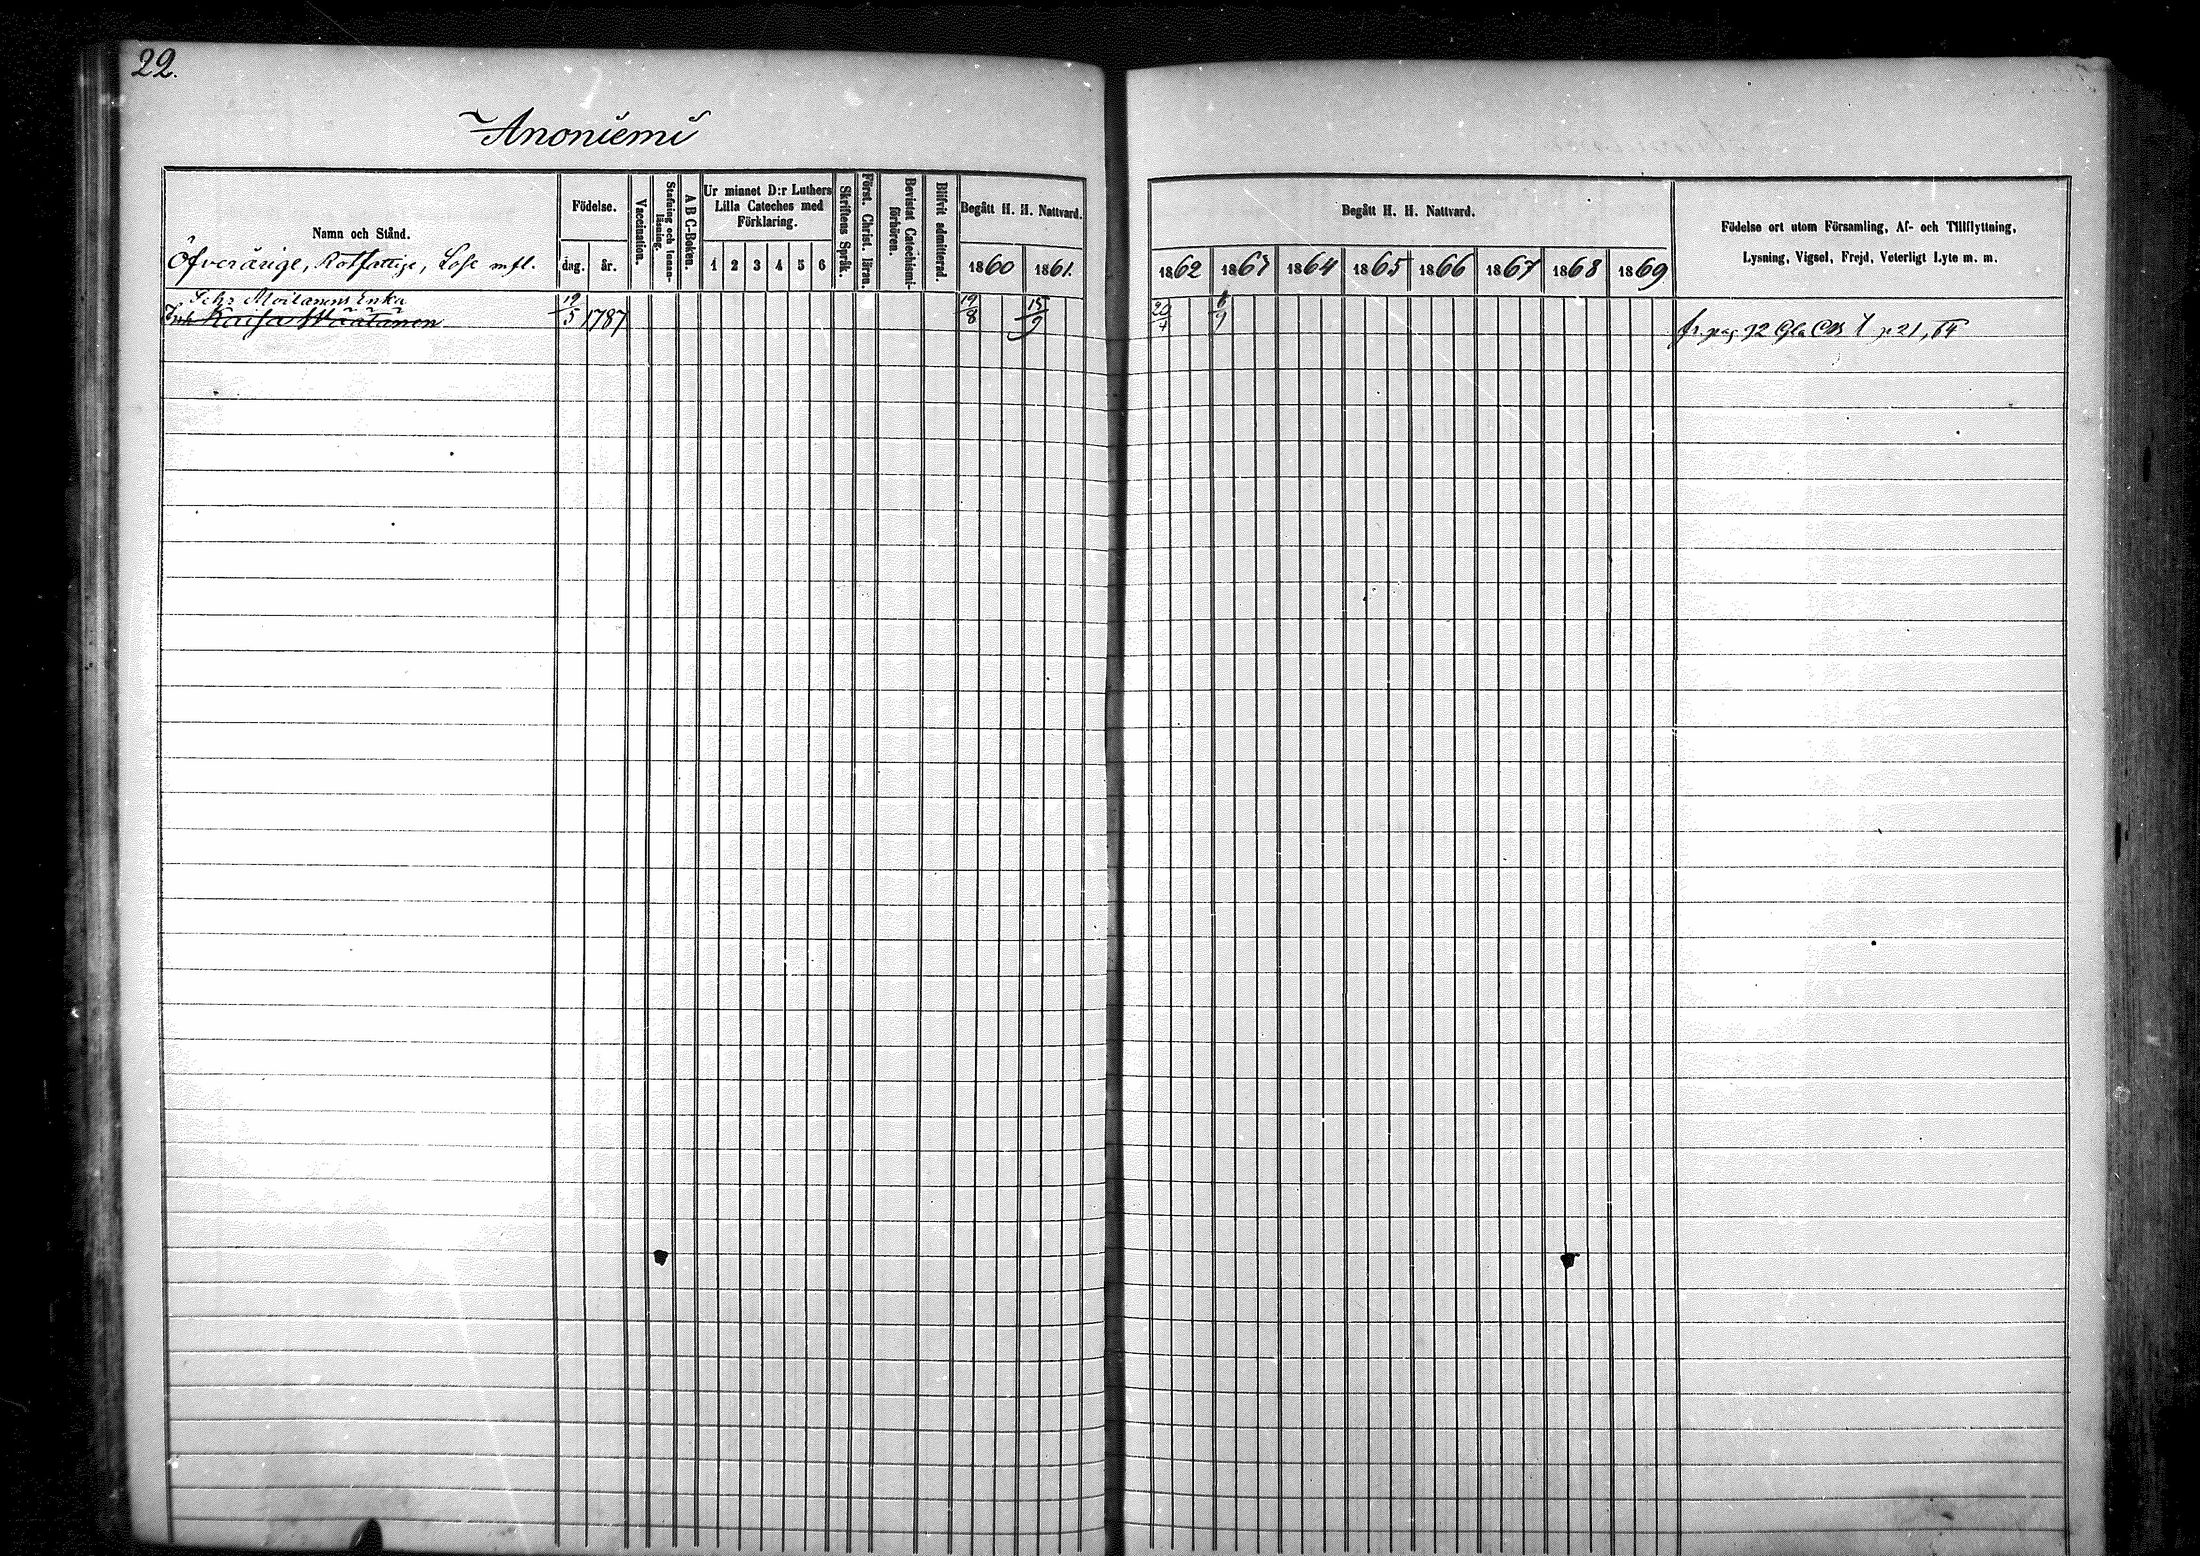 22.
Anoniemi
Namn och Stånd.
Öfverårige, Rotfattige, Lose mfl.
Födelse.
dag. år.
Vaccination.
Stafning och Innan-
läsning.
A B C-Boken.
Ur minnet D:r Luthers
Lilla Cateches med
Förklaring.
1 2 3 4 5 6
Skriftens Språk.
Först. Christ. läran.
Bevistat Catechismi-
förhören.
Blifvit admitterad.
Begått H. H. Nattvard.
1860 1861.
Begått H. H. Nattvard.
1862 1863 1864 1865 1866 1867 1868 1869
Födelse ort utom Församling, Af- och Tillflyttning,
Lysning, Vigsel, Frejd, Veterligt Lyte m. m.
Moilanens Enka
Kaisa Väätänen 19/5 1787 19/8 15/9 20/7 6/9 fr. pag. 92 p 21, 64